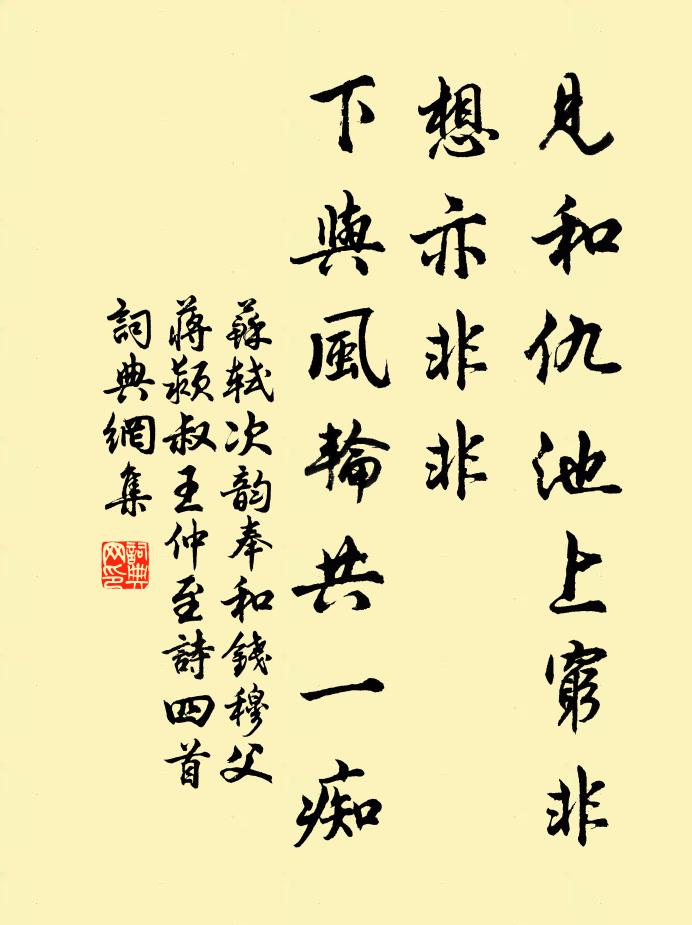 見和仇池上窮非
想亦非非
下與風輪共一痴
蘇軾次韵奉和錢穆父
蔣穎叔王仲至詩四首
詞典網集
詞典網印